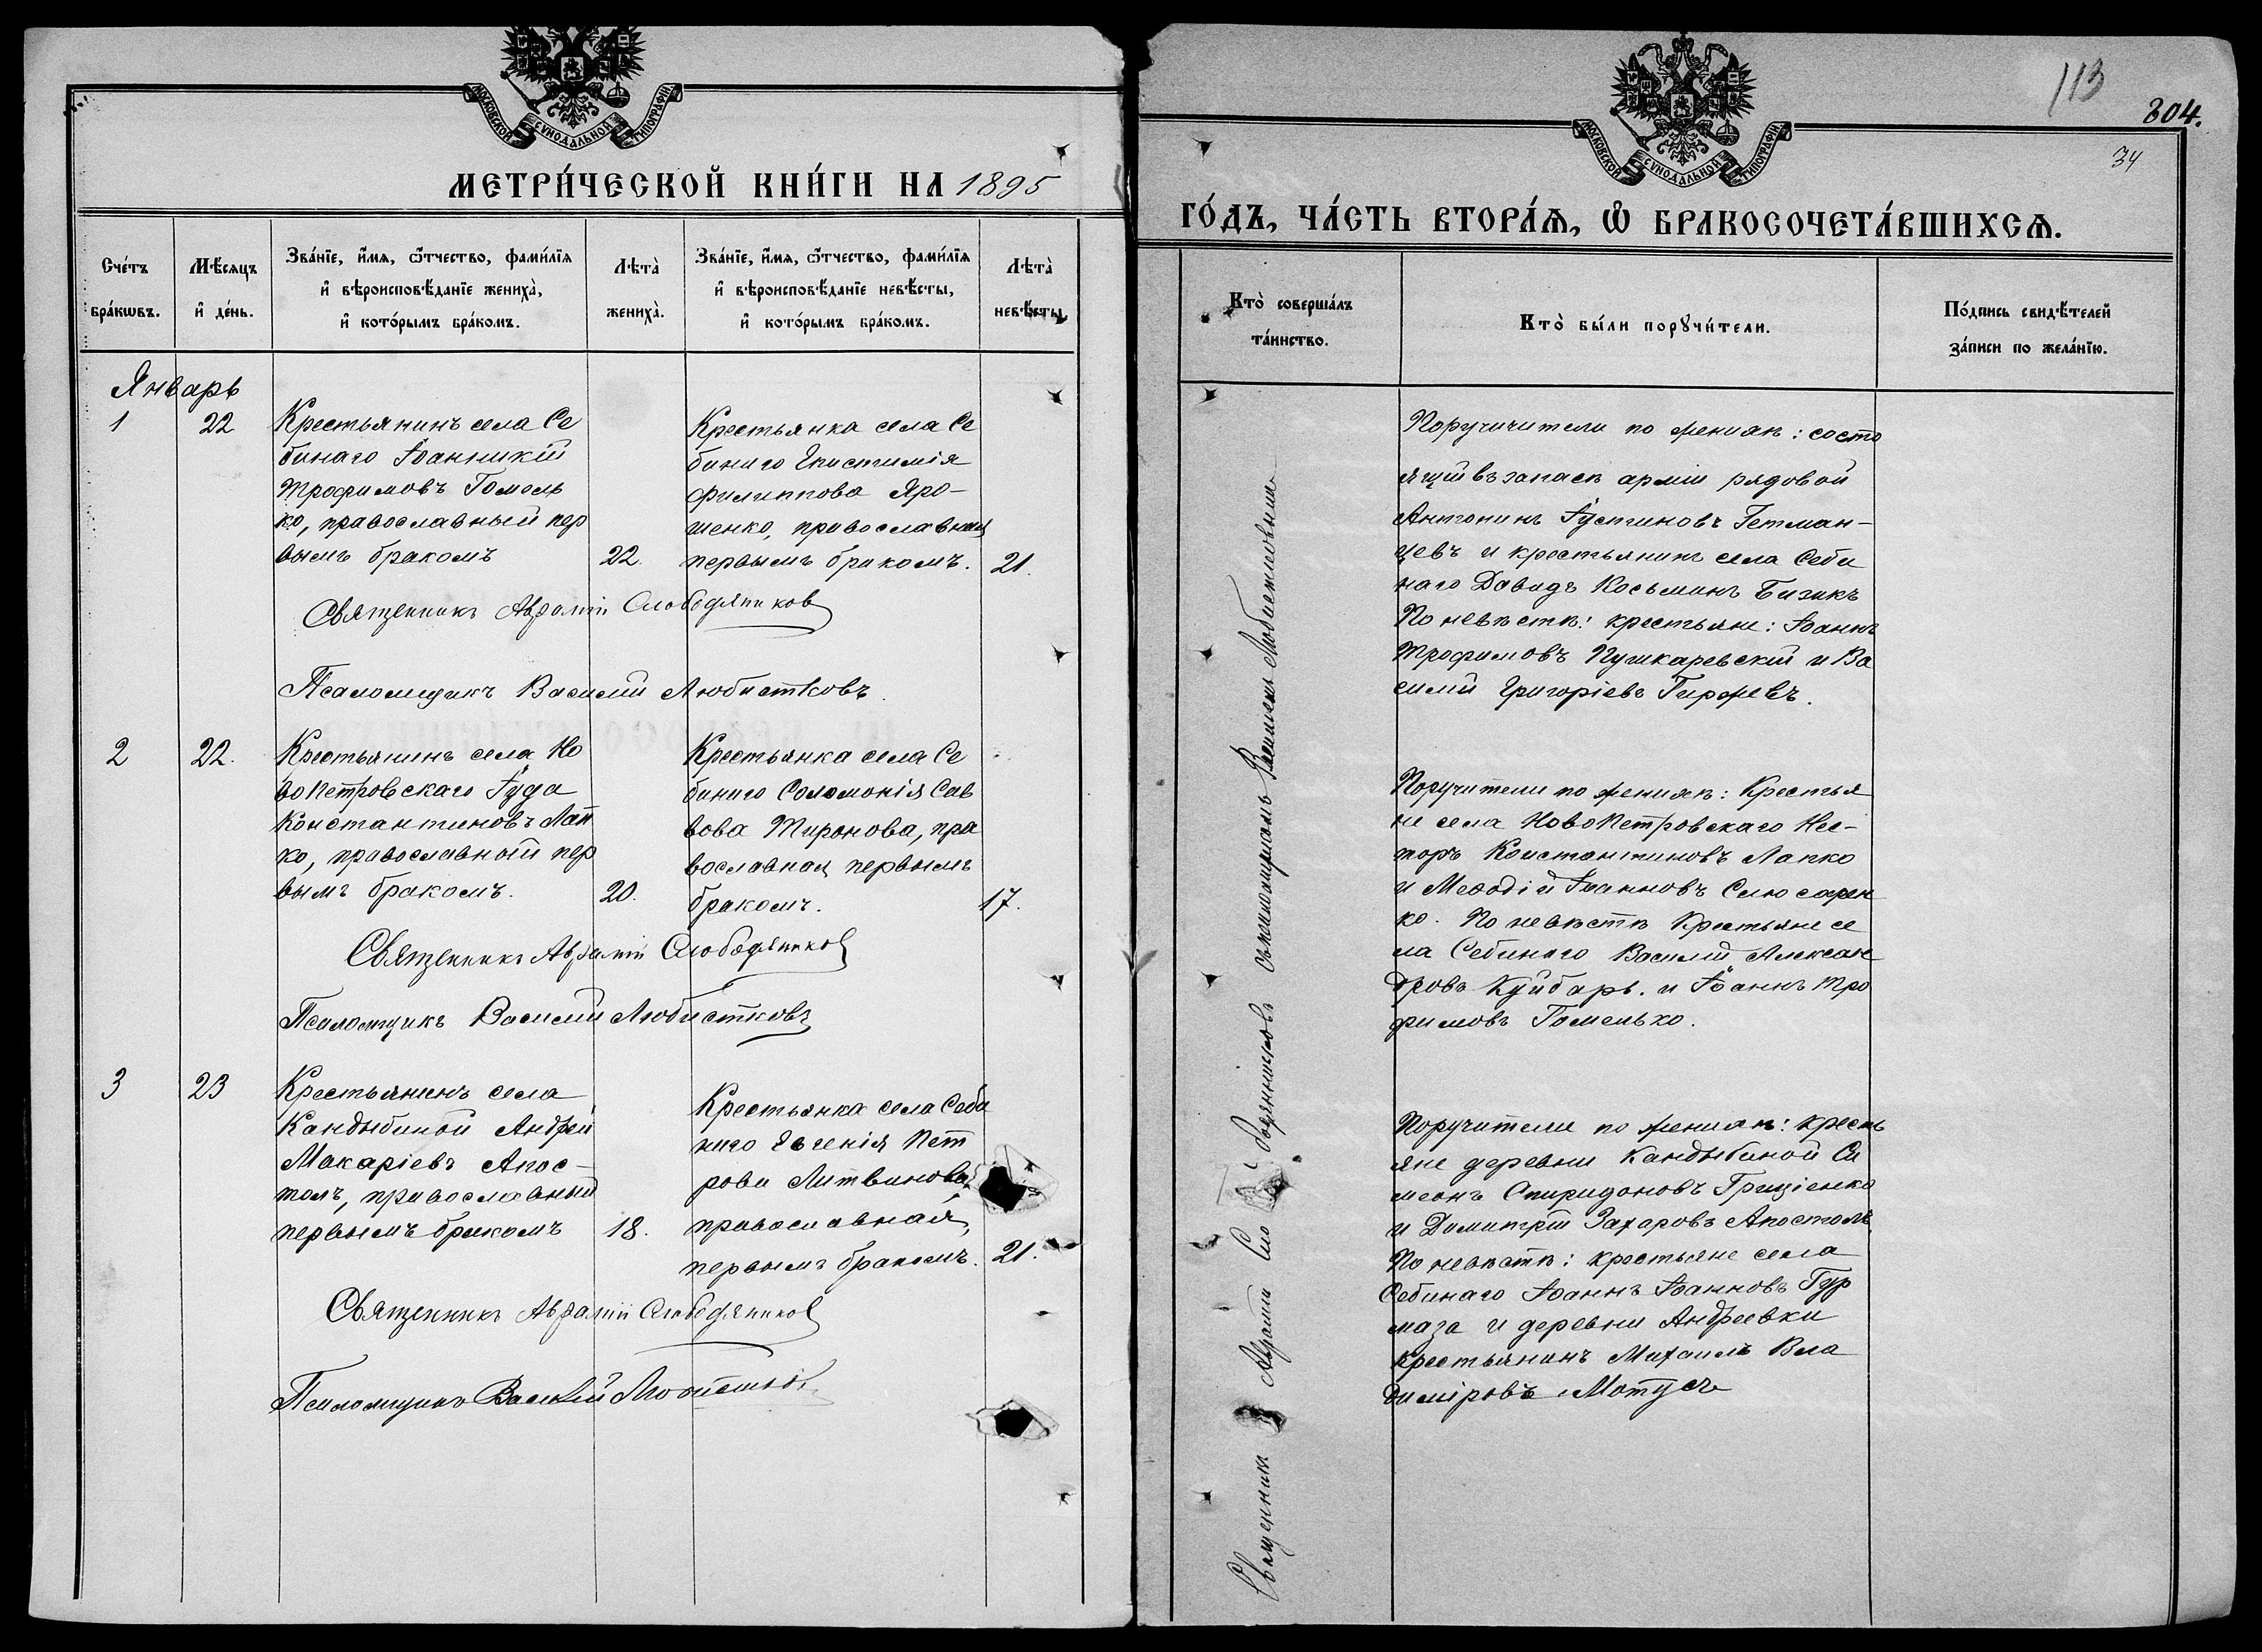 МОСКОВСКОЙ СѴНОДАЛЬНОЙ ТИПОГРАФІИ
МЕТРИ́ЧЕСКОЙ КНИ́ГИ НА 1895
Сче́тъ бра́кѡвъ.
Мѣ́сяцъ и҆ де́нь.
Зва́нїе, и҆́мя, ѻ҆́тчество, фами́лїя
и҆ вѣроисповѣ́данїе жениха̀,
и҆ кото́рымъ бра́комъ.
Лѣта̀ жениха̀.
Зва́нїе, и҆́мя, ѻ҆́тчество, фами́лїя
и҆ вѣроисповѣ́данїе невѣ́сты,
и҆ кото́рымъ бра́комъ.
Лѣта̀ невѣ́сты.
Январь
1
22
Крестьянинъ села Се
бинаго Іоанникій
Трофимовъ Гомель
ко, православный пер
вымъ бракомъ
22.
Крестьянка села Се
бинаго Епистимія
Филиппова Яро-
шенко, православная
первымъ бракомъ.
21.
Священникъ Аврамій Слободяников
Псаломщикъ Василій Любистковъ
2
22.
Крестьянинъ села Но
воПетровскаго Іуда
Константиновъ Лап
ко, православный пер
вымъ бракомъ.
20.
Крестьянка села Се
бинаго Соломонія Сав
вова Миронова, пра
вославная первымъ
бракомъ.
17.
Священникъ Аврамій Слободяников
Псаломщикъ Василій Любистковъ
3
23
Крестьянинъ села
Кандыбиной Андрей
Макаріевъ Апос-
толъ, православный
первымъ бракомъ
18.
Крестьянка села Себи
наго Евгенія Пет
рова Литвинова,
православная,
первымъ бракомъ.
21.
Священникъ Аврамій Слободяников
Псаломщикъ Василій Любистков
113
304.
34
МОСКОВСКОЙ СѴНОДАЛЬНОЙ ТИПОГРАФІИ
ГО́ДЪ, ЧА́СТЬ ВТОРА́Ѧ, Ѽ БРАКОСОЧЕТА́ВШИХСѦ.
Кто̀ соверша́лъ
та́инство.
Кто̀ бы́ли порꙋчи́тели.
По́дпись свидѣ́телей
за́писи по жела́нїю.
Священникъ Аврамій Сло
съ псаломщикомъ Василіемъ Любистковымъ
Поручичители по женихѣ: состо
ящій въ запасѣ арміи рядовой
Антонинъ Іустиновъ Гетман-
цевъ и крестьянинъ села Себи
наго Давидъ Косьминъ Бизикъ
По невѣстѣ: крестьяне: Іоаннъ
Трофимовъ Пушкаревскій и Ва
силій Григоріевъ Гиржевъ.
Поручители по женихѣ: Крестья
не села НовоПетровскаго Нес-
торъ Константиновъ Лапко
и Меѳодій Іоанновъ Слюсарен
ко. По невѣстѣ Крестьяне се
ла Себинаго Василій Алексан
дровъ Куйбаръ. и Іоаннъ Тро
фимовъ Гомелько.
Поручители по женихѣ: кресть
яне деревни Кандыбиной Си
меонъ Спиридоновъ Гриціенко
и Димитрій Захаровъ Апостолъ.
По невѣстѣ: крестьяне села
Себинаго Іоаннъ Іоанновъ Гур
маза и деревни Андреевки
крестьянинъ Михаилъ Вла
диміровъ Мотузъ